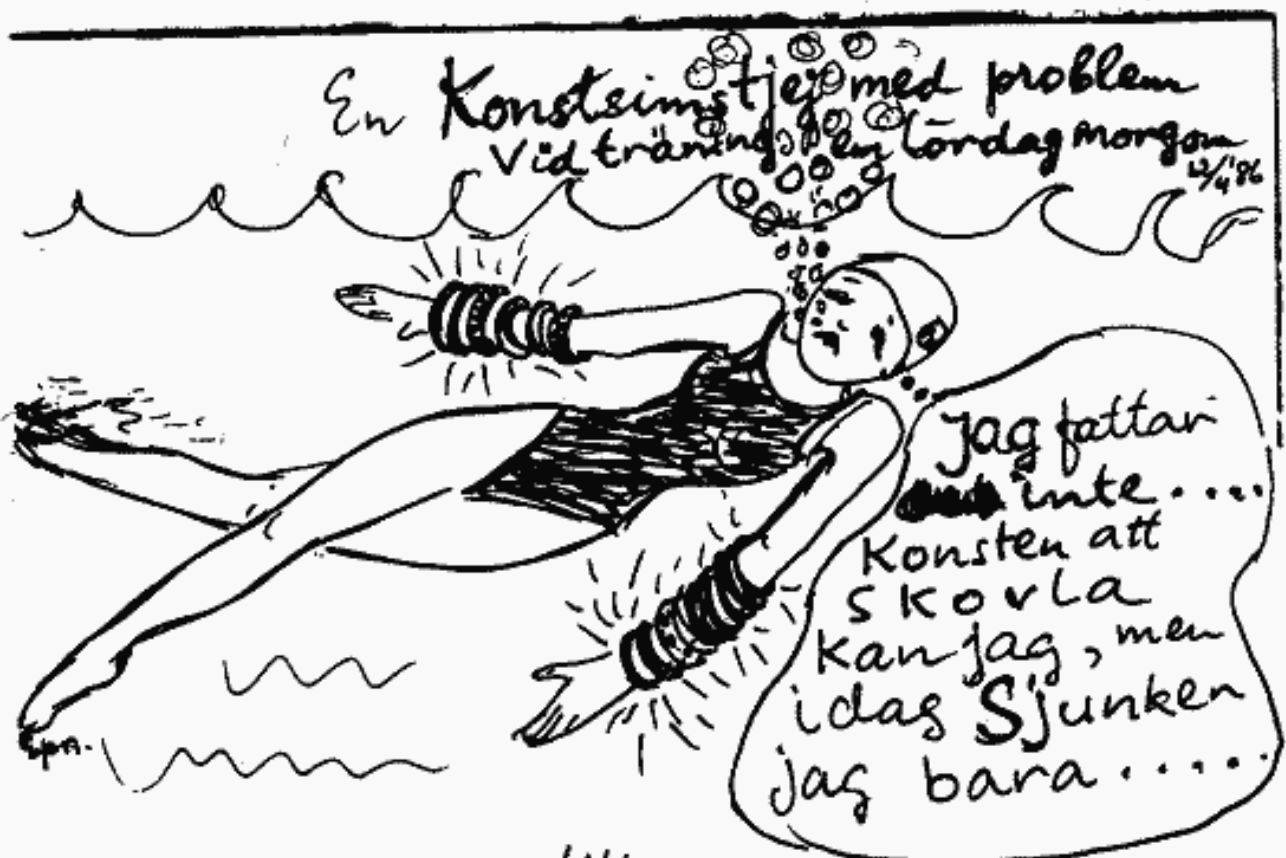 En Konstsims tjej med problem
Vid träning, en lördag morgon
12/4 '86
jag fattar
inte.....
Konsten att
skovla
kan jag, men
idag Sjunker
jag bara......